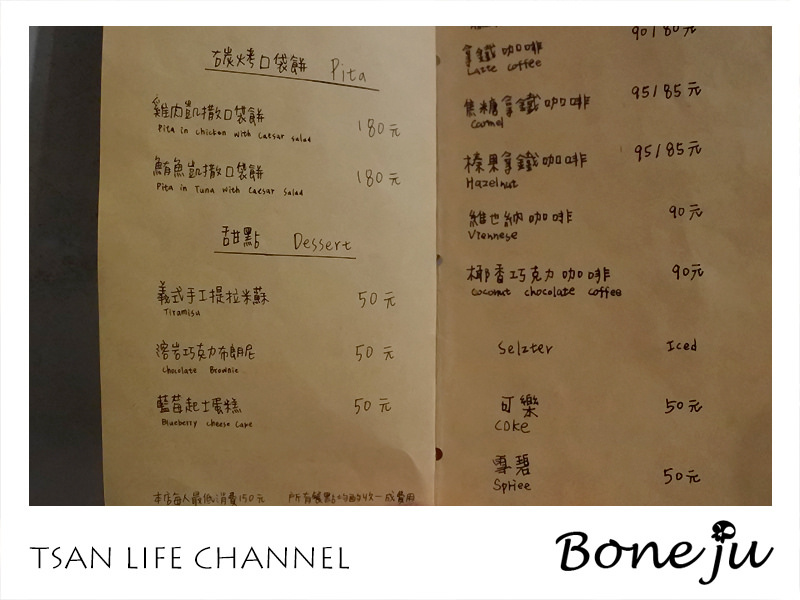 碳烤口袋餅 Pita
雞肉凱撒口袋餅 180元
Pita in chicken with Caesar salad
鮪魚凱撒口袋餅 180元
Pita in Tuna with Caesar Salad
甜點 Dessert
義式手工提拉米蘇 50元
Tiramisu
溶岩巧克力布朗尼 50元
Chocolate Brownie
藍莓起士蛋糕 50元
Blueberry cheese Cake
本店每人最低消費150元 所有餐點均酌收一成費用
90/80元
拿鐵咖啡
Latte coffee
焦糖拿鐵咖啡 95/85元
Caramel
榛果拿鐵咖啡 95/85元
Hazelnut
維也納咖啡 90元
Viennese
椰香巧克力咖啡 90元
coconut chocolate coffee
Selzter Iced
可樂 50元
COKE
雪碧 50元
Spriee
TSAN LIFE CHANNEL
Boneju